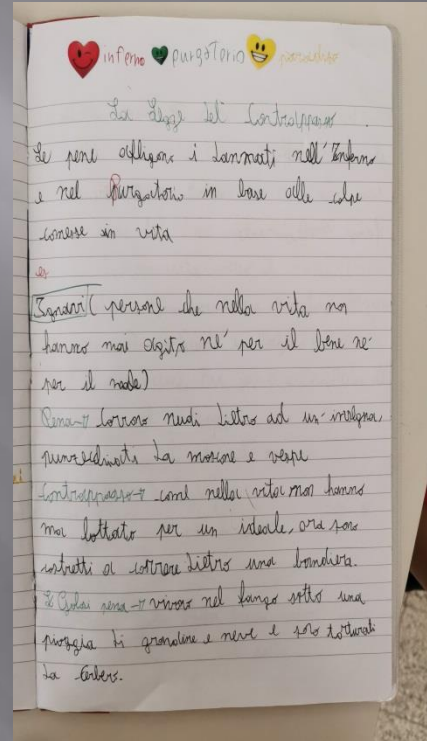 inferno purgatorio paradiso
La Legge del Contrappasso
Le pene affligono i dannati nell'Inferno
e nel Purgatorio in base alle colpe
comesse in vita
es
Ignavi ( persone che nella vita non
hanno mai agito né per il bene ne
per il male)
Pena→ Corrono nudi dietro ad un'insegna,
punzecchiati da mosconi e vespe
Contrappasso→ come nella vita non hanno
mai lottato per un ideale, ora sono
costretti a correre dietro una bandiera.
I Golosi pena→ vivono nel fango sotto una
pioggia di grandine e neve e sono torturati
da Cerbero.